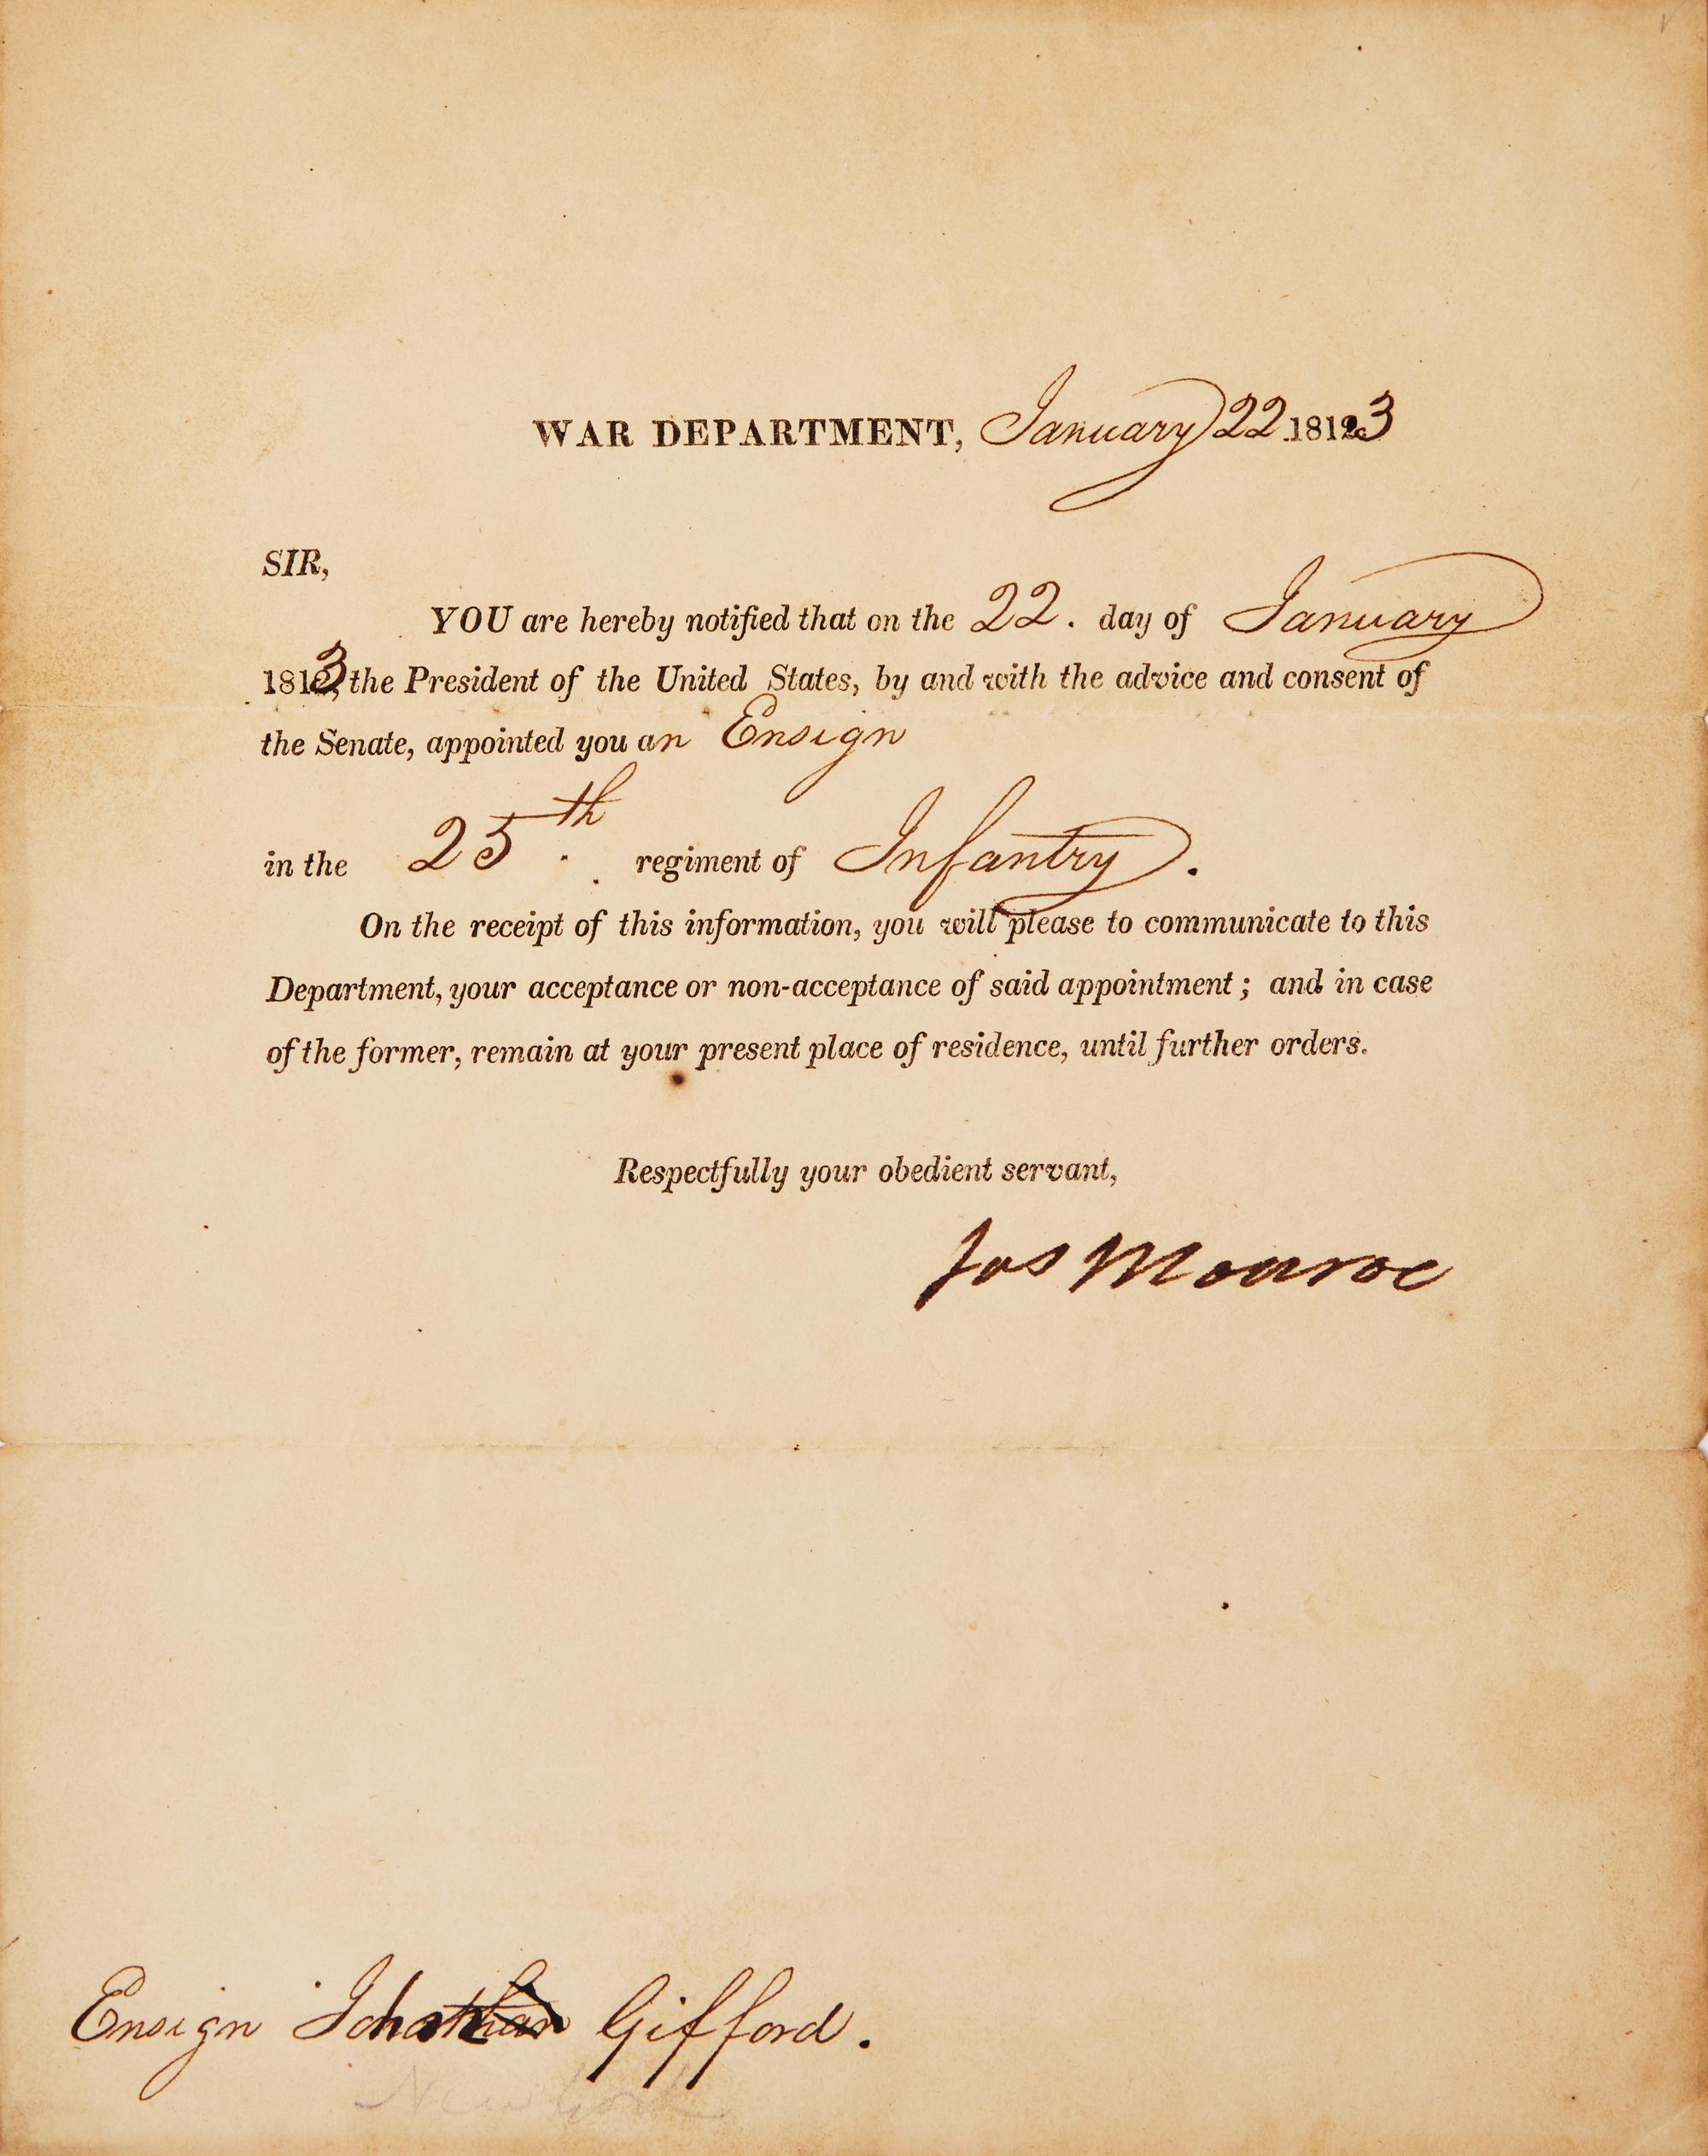 WAR DEPARTMENT, January 22 1813
SIR,
YOU are hereby notified that on the 22. day of January
1813, the President of the United States, by and with the advice and consent of
the Senate, appointed you an Ensign
in the 25th. regiment of Infantry.
On the receipt of this information, you will please to communicate to this
Department, your acceptance or non-acceptance of said appointment; and in case
of the former, remain at your present place of residence, until further orders.
Respectfully your obedient servant,
Jas Monroe
Ensign Gifford.
New York